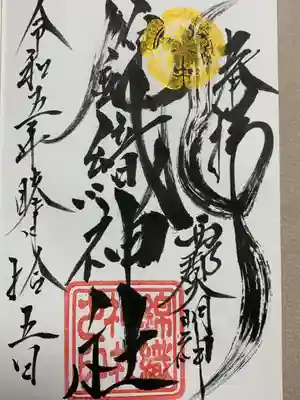 奉拝
明神
錦織神社
令和五年月拾五日
錦織
神社